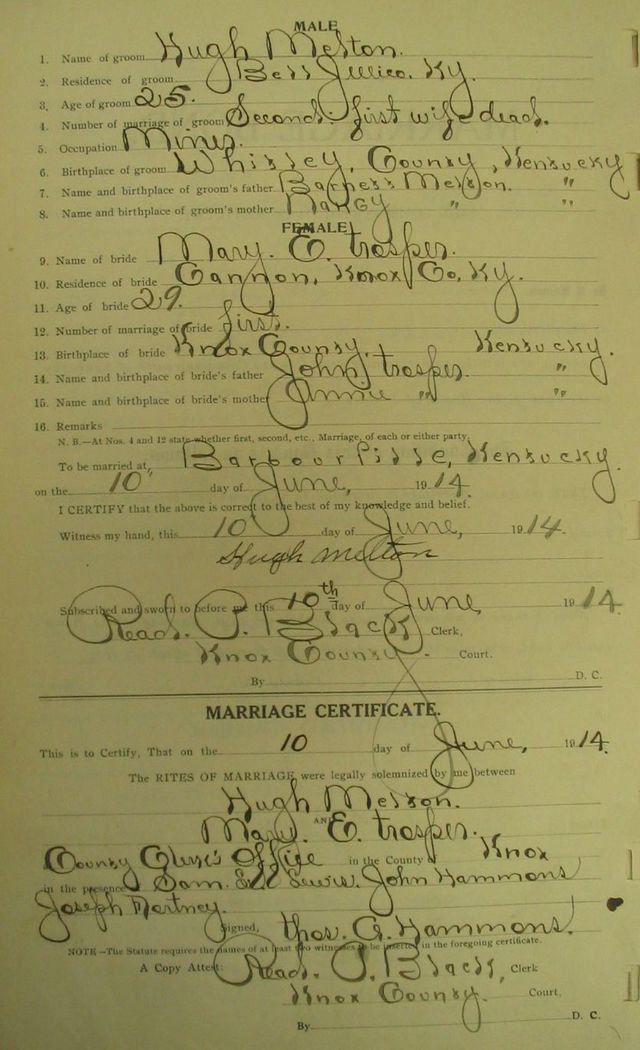 MALE
1. Name of groom Hugh Melton.
2. Residence of groom Bess Jellico. Ky.
3. Age of groom 25.
4. Number of marriage of groom Second. first wife dead.
5. Occupation Miner.
6. Birthplace of groom Whitley, County, Kentucky
7. Name and birthplace of groom's father Melton. "
8. Name and birthplace of groom's mother Nancy " "
FEMALE
9. Name of bride Mary. E. trosper.
10. Residence of bride Cannon, Knox Co, Ky.
11. Age of bride 29.
12. Number of marriage of bride first.
13. Birthplace of bride Knox County, Kentucky.
14. Name and birthplace of bride's father John trosper. "
15. Name and birthplace of bride's mother Jannie " "
16. Remarks
N. B.—At Nos. 4 and 12 state whether first, second, etc., Marriage, of each or either party.
To be married at, Barbourville, Kentucky.
on the 10 day of June, 1914.
I CERTIFY that the above is correct to the best of my knowledge and belief.
Witness my hand, this 10 day of June, 1914.
Hugh Melton
Subscribed and sworn to before me this 10th day of June 1914.
Read. P. Black Clerk,
Knox County. Court.
By D. C.
MARRIAGE CERTIFICATE.
This is to Certify, That on the 10 day of June, 1914.
The RITES OF MARRIAGE were legally solemnized by me between
Hugh Melton.
AND
Mary. E. trosper.
County Clerk's Office in the County Knox
in the presence Sam. Lewis. John Hammons
Joseph
Signed, thos. G. Hammons.
NOTE—The Statute requires the names of at least two witnesses to be inserted in the foregoing certificate.
A Copy Attest: Read. P. Black, Clerk
Knox County. Court,
By D. C.